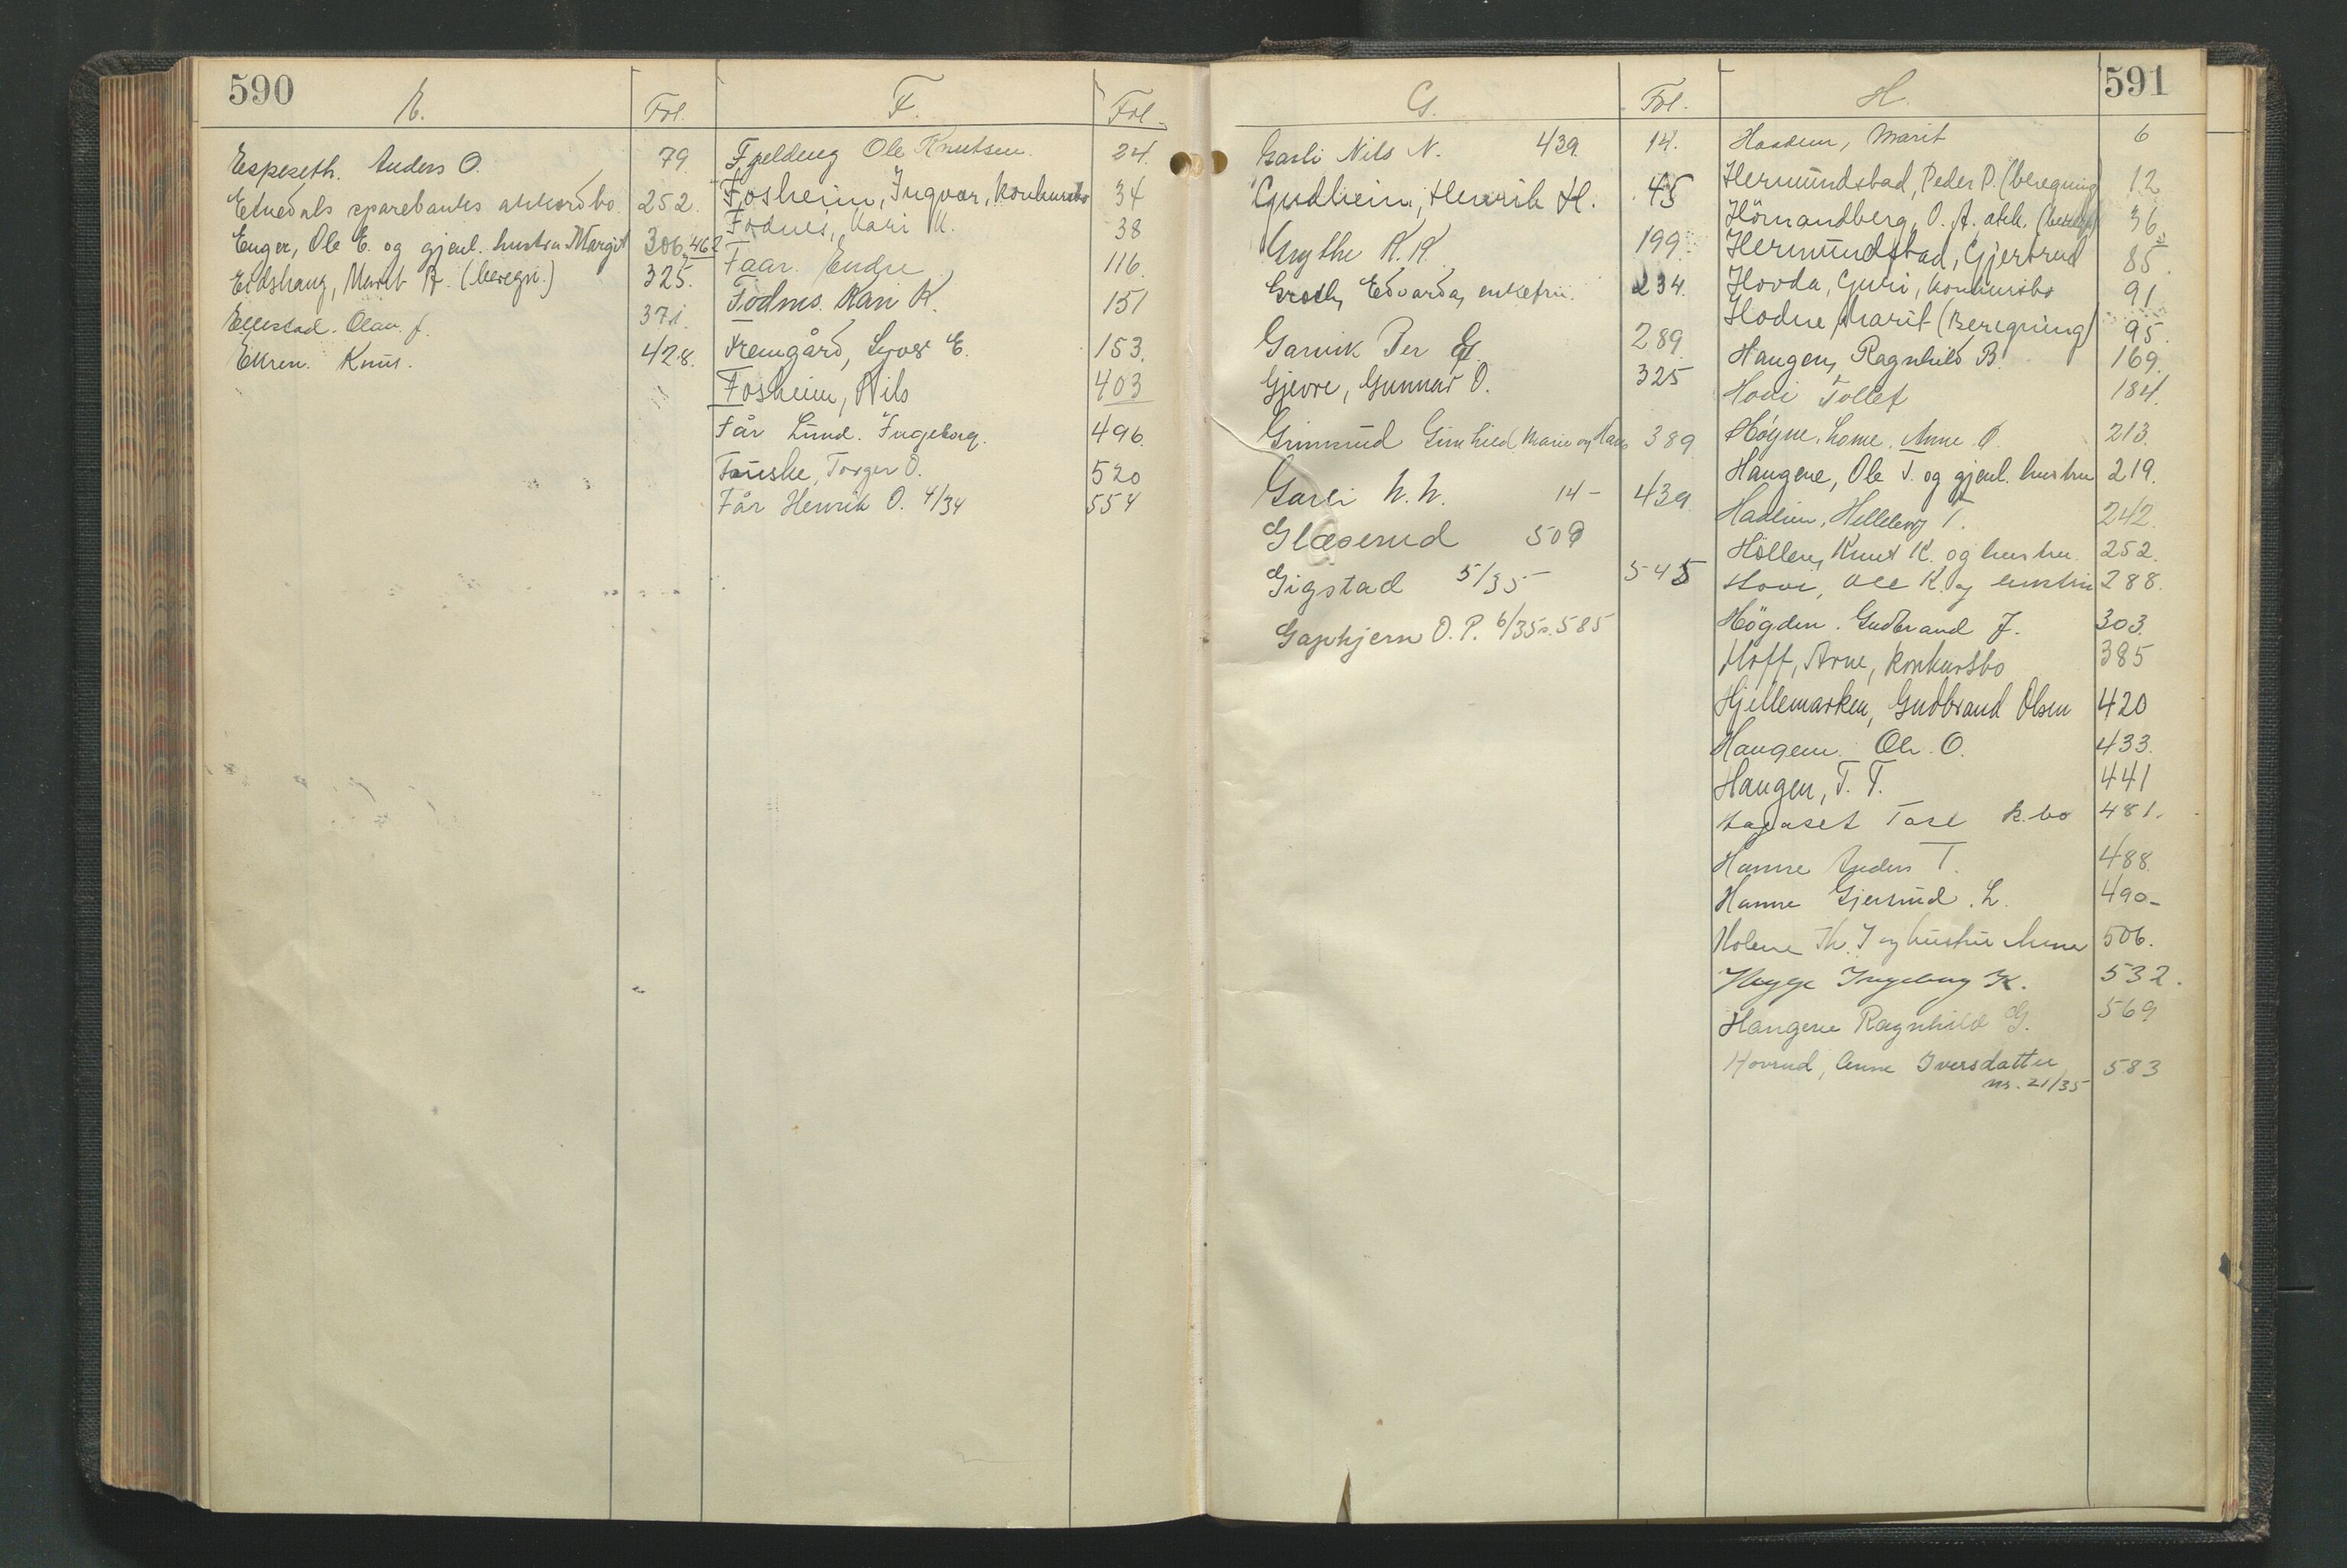 590
E.
Fol.
Espeseth. Anders O. 79.
Etnedals sparebanks akkordbo. 252.
Enger, Ole E. og gjenl. hustru Margit 306, 462
Eidshaug, Marit (beregn.) 325.
Ellestad. Olav. J. 371.
Ekren. Knut. 428.
F.
Fol.
Fjeldeng Ole Knutsen. 24.
Fosheim, Ingvar, konkursbo 34
Fodnes, Kari K. 38
Faar. Endre 116.
Fodnes. Kari K. 151
Fremgård, Syver E. 153.
Fosheim, Nils 403
Får Lund. Ingeborg. 496.
Fauske, Torger O. 520
Får Henrik O. 4/34 554
G.
Fol.
Garli Nils N. 439. 14.
Gudheim, Henrik H. 45
Grythe K. K. 199.
Groth, Edvarda, enkefru. 234.
Garvik Per G. 289.
Gjevre, Gunnar O. 325
Grimsrud Gunhild Marie og 389
Garli N. N. 14 - 439.
Glæserud 509
Gigstad 5/35 545
Gaphjern O. P. 6/35 s. 585
591
H.
Haadem, Marit 6
Hermundstad, Peder P. (beregning) 12
Hömandberg, O. A. akk. 36
Hermundstad, Gjertrud 85.
Hovda, Guri, konkursbo 91
Hodne, Marit (Beregning) 95.
Haugen, Ragnhild B. 169.
Hovi Tollef 184.
Høyne, Anne O. 213.
Haugene, Ole T. og gjenl. hustru 219.
Hadem, Helleborg T. 242.
Høllen, Knut K. og hustru. 252.
Hovi, Ole K. og hustru 288.
Högden. Gudbrand J. 303.
Hoff, Arne, konkursbo 385
Hjellemarken, Gudbrand Olsen 420
Haugen. Ole O. 433.
Haugen, T. T. 441
Hagaset Tore k.bo 481.
Hamre Anders T. 488.
Hamre Gjertrud. L. 490-
Holene Th. J og hustru Anna 506.
Hegge Ingeborg K. 532.
Haugene Ragnhild G. 569
Hovrud, Anne Iversdatter 583
nr. 21/35